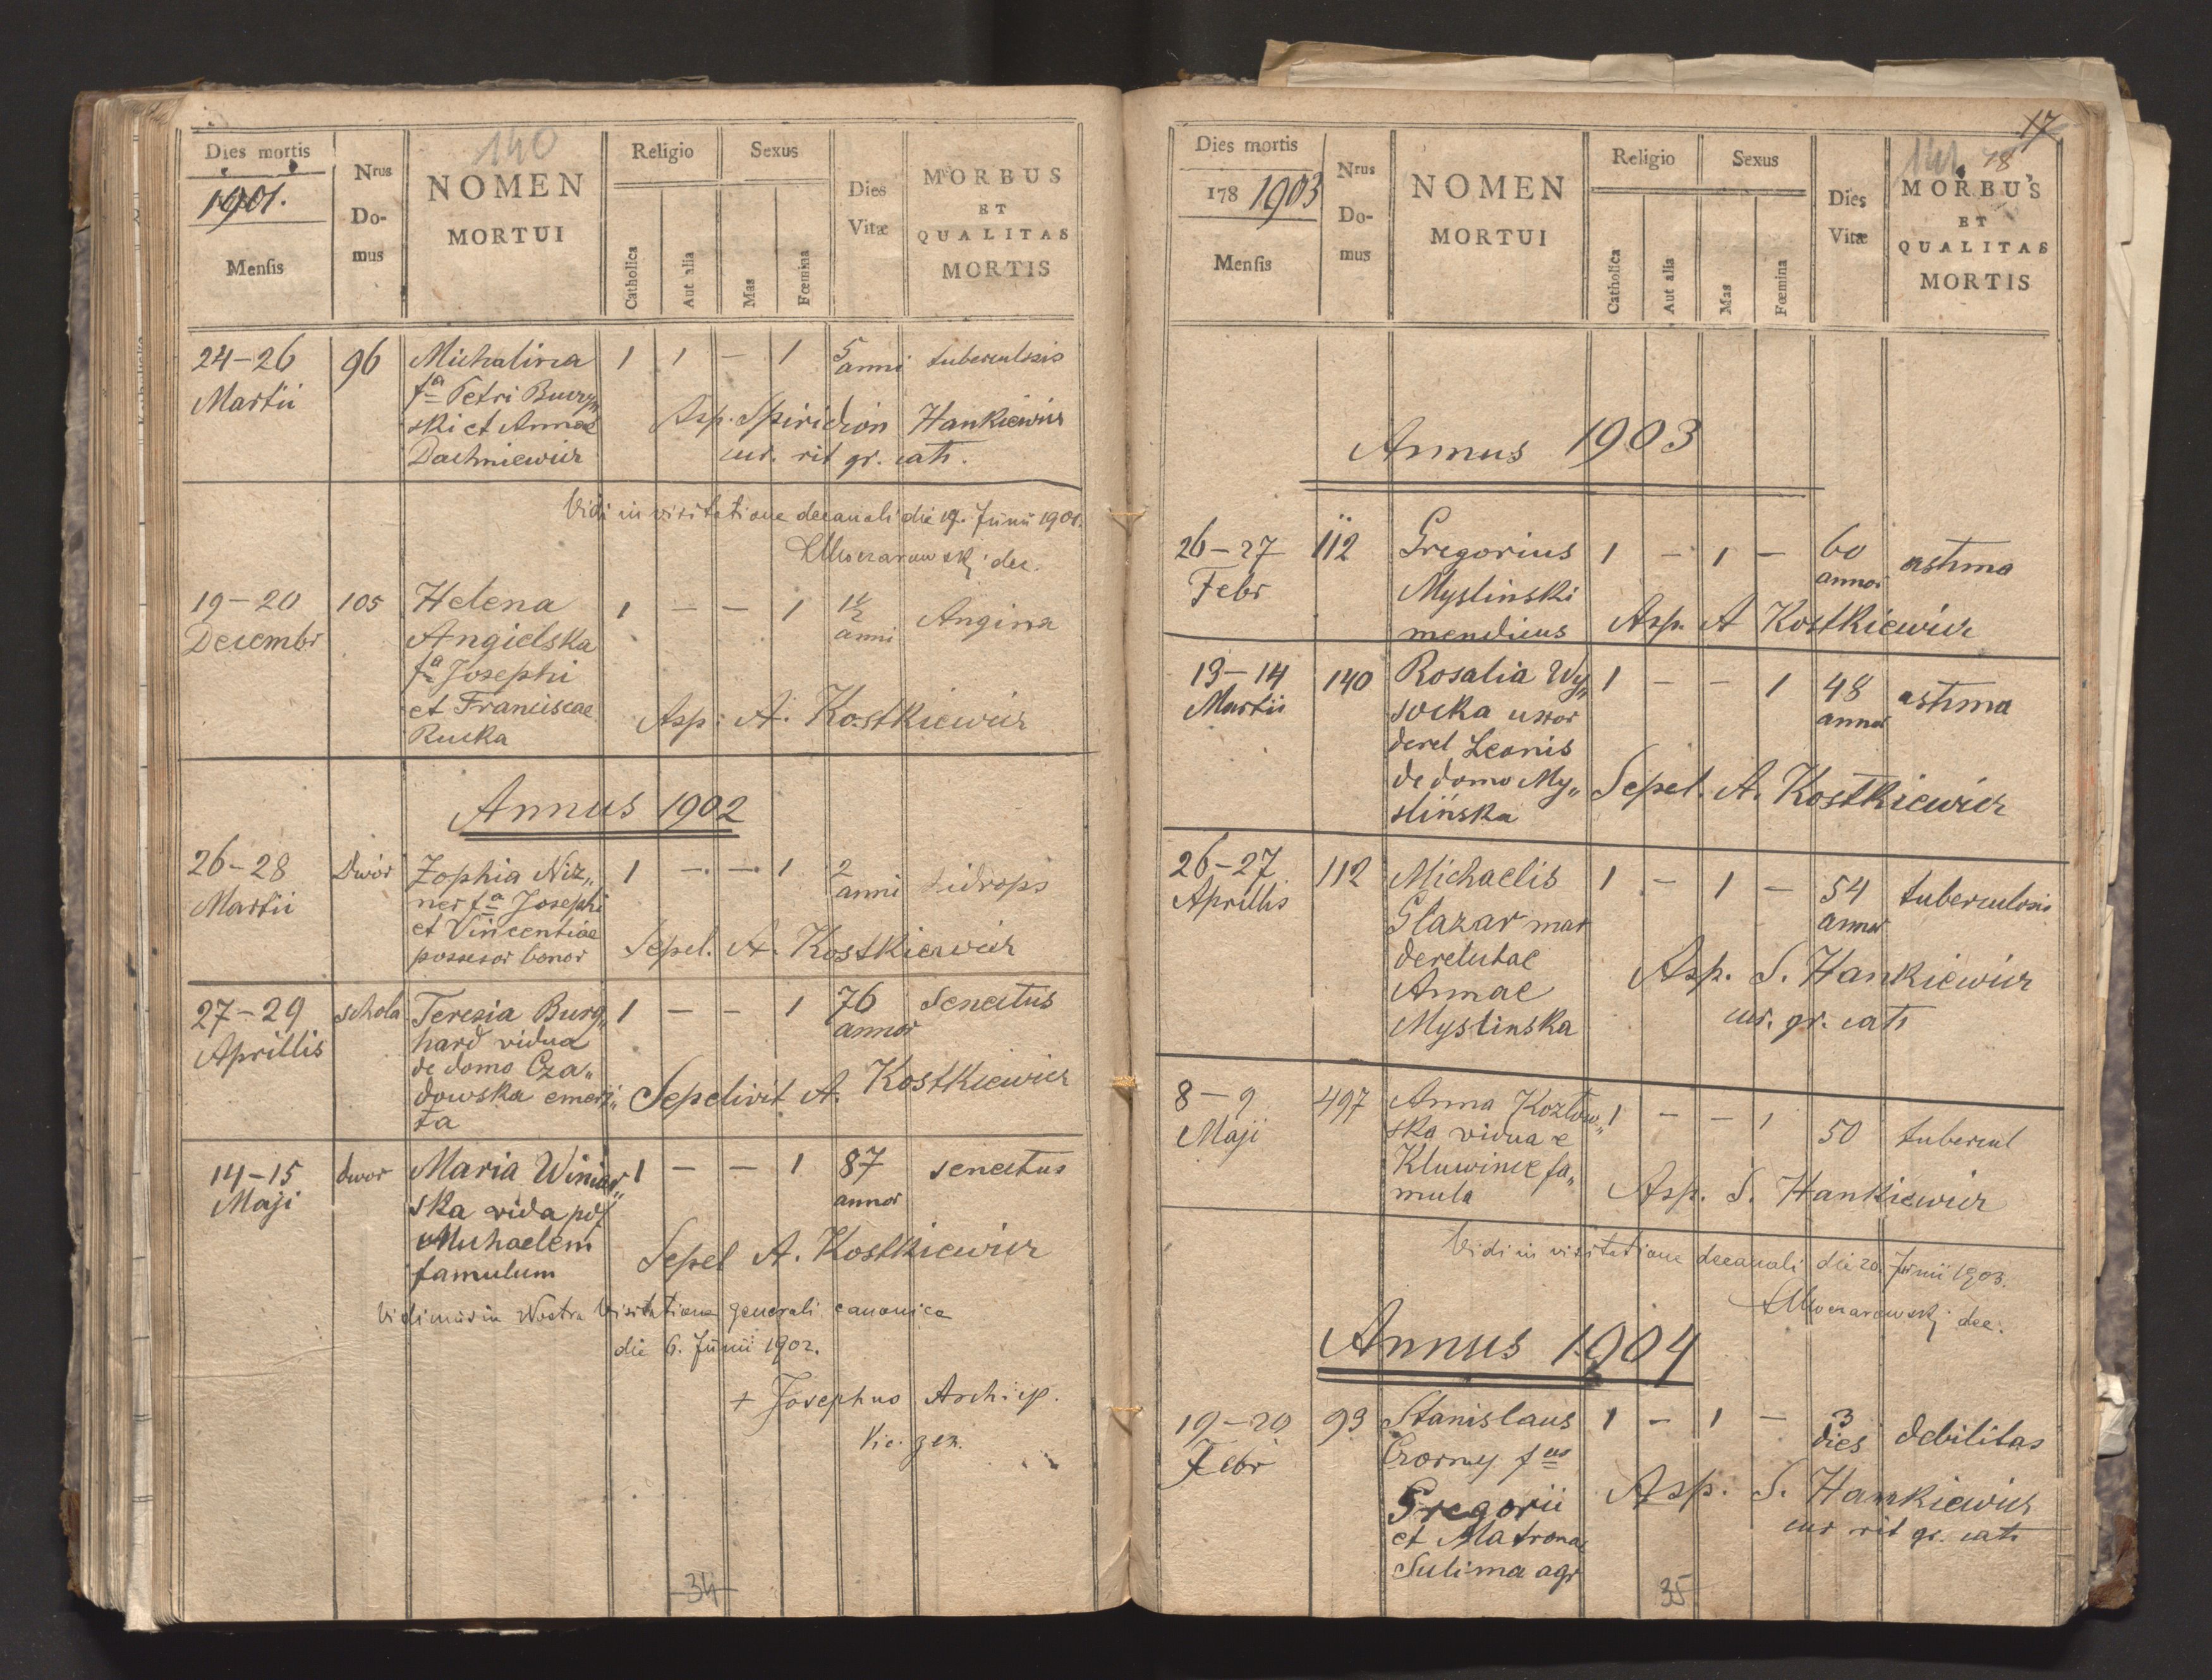 140
Dies mortis
1901.
Mensis
Nrus
Do-
mus
NOMEN
MORTUI
Religio
Catholica
Aut alia
Sexus
Mas
Fœmina
Dies
Vitæ
MORBUS
ET
QUALITAS
MORTIS
24-26 96 Michalina 1 1 – 1 5 tuberculosis
Martii fa Petri Burzyń„ anni
ski et Annae Asp. Spiridion Hankiewicz
Dachniewicz cur. rit gr. cath.
Vidi in visitatione decanali die 19. Junii 1901.
Moczarowski dec.
19-20 105 Helena 1 – – 1 1½ Angina
Decembr Angielska anni
fa Josephi
et Franciscae Asp. A. Kostkiewicz
Rucka
Annus 1902
26-28 Dwór Zophia Niz„ 1 – – 1 2 hidrops
Martii ner fa Josephi anni
et Vincentiae Sepel. A. Kostkiewicz
possesor bonor
27-29 schola Teresia Burg„ 1 – – 1 76 Senectus
Aprillis hard vidua annor
de domo Cza„
dowska emeri„ Sepelivit A. Kostkiewicz
ta
14-15 dwor Maria Winiar„ 1 – – 1 87 senectus
Maji ska vida post annor
Michaelem
famulum Sepel A. Kostkiewicz
Vidimus in Nostra Visitatione generali canonica
die 6. Junii 1902.
+ Josephus Archiep.
Vic. gen.
34
17
141. 18
Dies mortis
178 1903
Mensis
Nrus
Do-
mus
NOMEN
MORTUI
Religio
Catholica
Aut alia
Sexus
Mas
Fœmina
Dies
Vitæ
MORBUS
ET
QUALITAS
MORTIS
Annus 1903
26-27 112 Gregorius 1 – 1 – 60 astma
Febr Myslinski annor
mendicus Asp. A Kostkiewicz
13-14 140 Rosalia Wy„ 1 – – 1 48 astma
Martii socka uxor annor
derel Leonis
de domo My„ Sepel. A. Kostkiewicz
slińska
26-27 112 Michaelis 1 – 1 – 54 tuberculosis
Aprillis Glazar mar annor
derelictae
Annae Asp. S. Hankiewicz
Myslinska cur. gr. cath
8-9 497 Anna Kozłow„ 1 – – 1 50 tubercul
Maji ska vidua e
Kluwince fa„
mula Asp. S. Hankiewicz
Vidi in visitatione decanali die 20. Junii 1903.
Moczarowski dec.
Annus 1904
19-20 93 Stanislaus 1 – 1 – 3 debilitas
Febr Czorny fus dies
Gregorii Asp. S. Hankiewicz
et Matronae cur rit gr. cath
Sulima agr
35